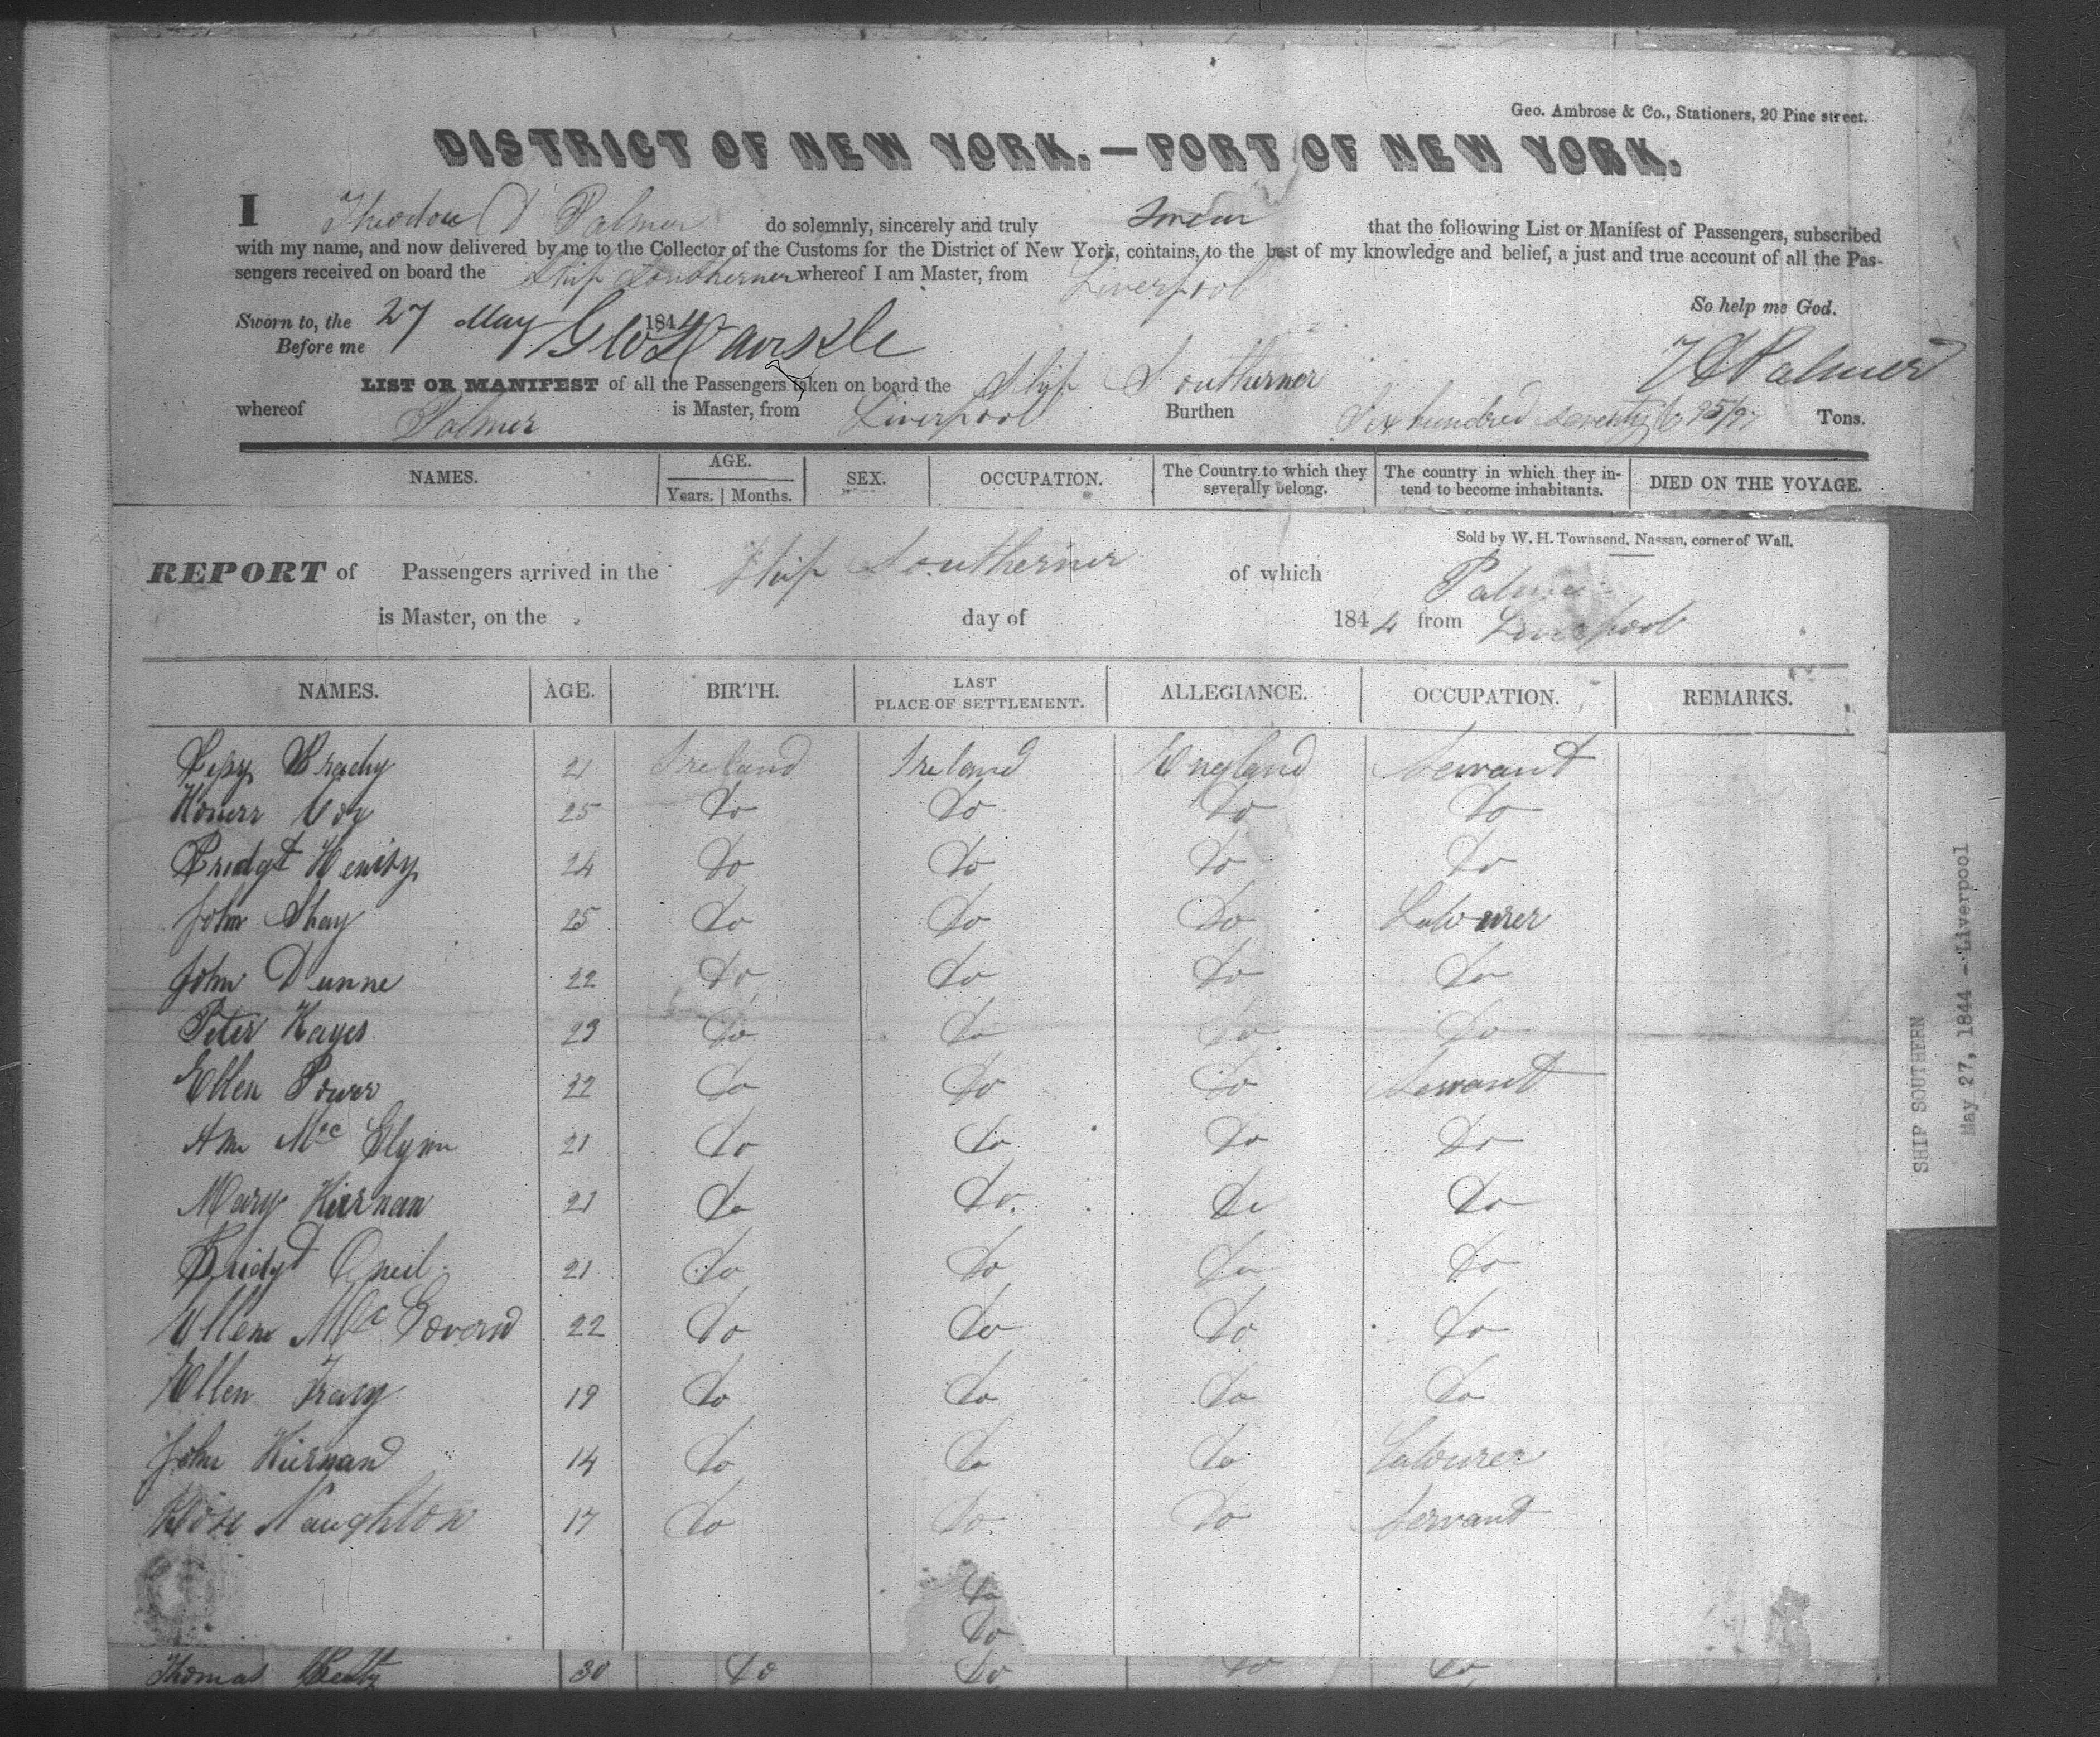 Geo. Ambrose & Co., Stationers, 20 Pine street.
DISTRICT OF NEW YORK.—PORT OF NEW YORK.
I Theodore D Palmer do solemnly, sincerely and truly swear that the following List or Manifest of Passengers, subscribed
with my name, and now delivered by me to the Collector of the Customs for the District of New York, contains, to the best of my knowledge and belief, a just and true account of all the Pas-
sengers received on board the Ship Southerner whereof I am Master, from Liverpool
So help me God.
Sworn to, the 27 May 1844
Before me
Palmer
LIST OR MANIFEST of all the Passengers taken on board the Ship Southerner
whereof Palmer is Master, from Liverpool Burthen Six hundred seventy 6 95/97 Tons.
NAMES. AGE. Years. Months. SEX. OCCUPATION. The Country to which they severally belong. The country in which they in-tend to become inhabitants. DIED ON THE VOYAGE.
Sold by W. H. Townsend, Nassau, corner of Wall.
REPORT of Passengers arrived in the Ship Southerner of which Palmer
is Master, on the day of 1844 from Liverpool
NAMES. AGE. BIRTH. LAST PLACE OF SETTLEMENT. ALLEGIANCE. OCCUPATION. REMARKS.
Brady 21 Ireland Ireland England Servant
25 Do Do Do Do
Bridgt 24 Do Do Do Do
John Shay 25 Do Do Do Labourer
John Dunne 22 Do Do Do Do
Peter Hayes 23 Do Do Do Do
Ellen Power 22 Do Do Do Servant
Ann Mc Glynn 21 Do Do Do Do
Mary Kiernan 21 Do Do Do Do
Bridgt Oneil 21 Do Do Do Do
Ellen Mc Govern 22 Do Do Do Do
Ellen Tracy 19 Do Do Do Do
John Kiernan 14 Do Do Do Labourer
Rose Naughton 17 Do Do Do Servant
Do
Do
Thomas 30 Do Do Do Do
SHIP SOUTHERN
May 27, 1844 - Liverpool